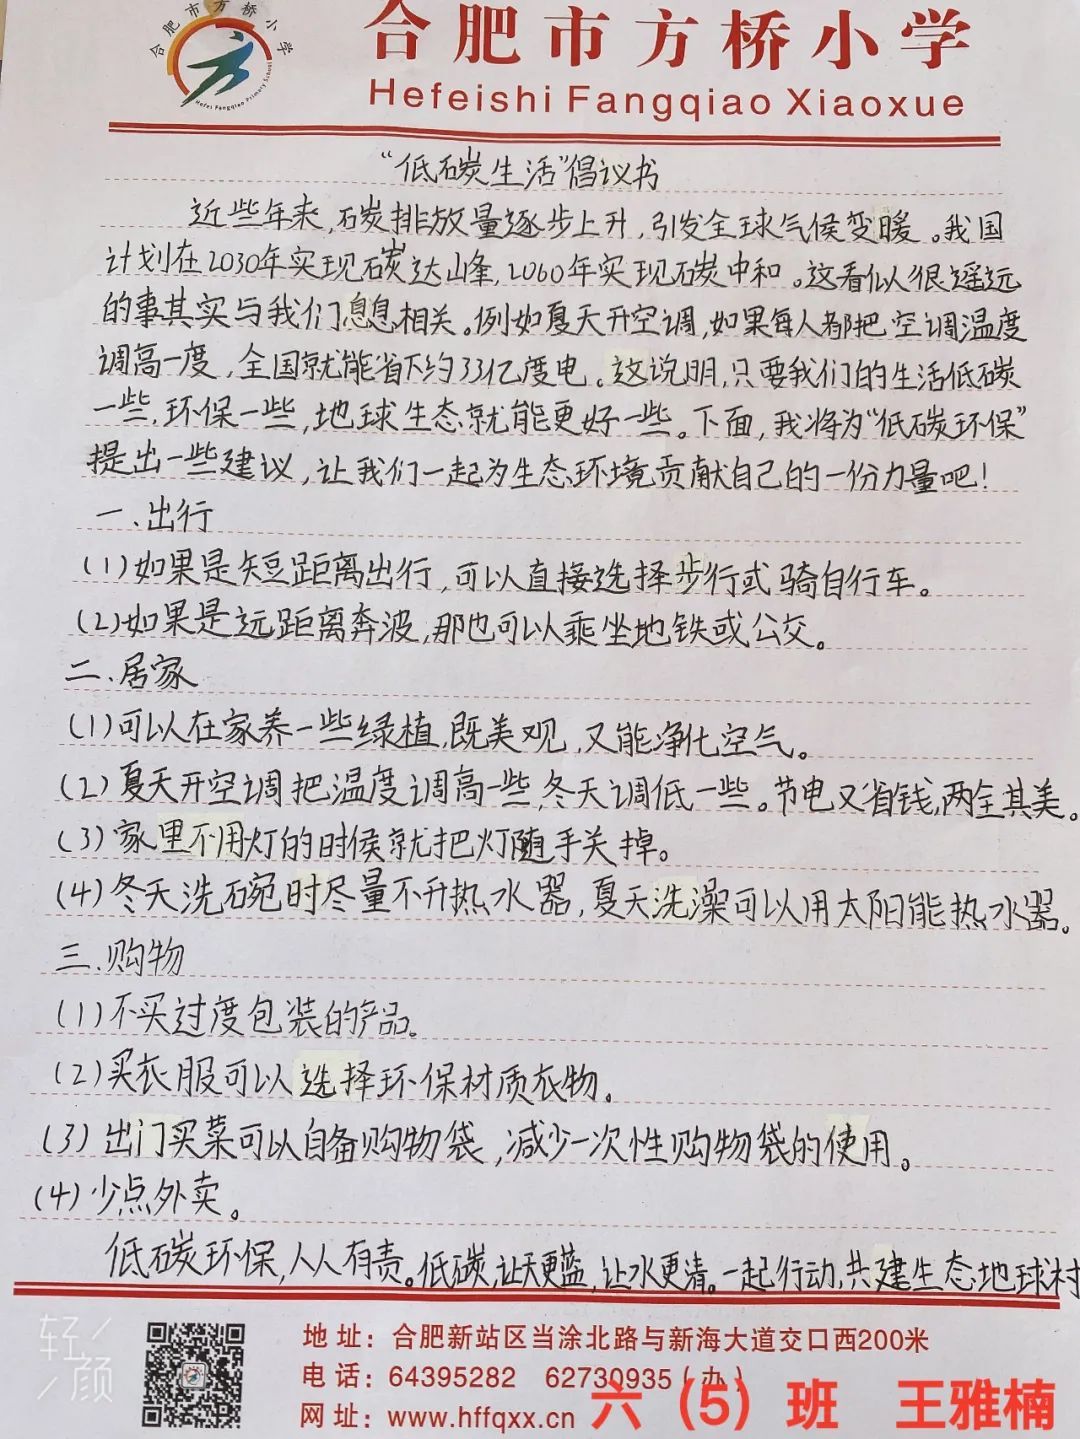 合肥市方桥小学
Hefei Fangqiao Primary School
合肥市方桥小学
Hefeishi Fangqiao Xiaoxue
“低碳生活”倡议书
近些年来,碳排放量逐步上升,引发全球气候变暖。我国
计划在2030年实现碳达峰,2060年实现碳中和。这看似很遥远
的事其实与我们息息相关。例如夏天开空调,如果每人都把空调温度
调高一度,全国就能省下约33亿度电。这说明,只要我们的生活低碳
一些,环保一些,地球生态就能更好一些。下面,我将为“低碳环保”
提出一些建议,让我们一起为生态环境贡献自己的一份力量吧!
一、出行
(1)如果是短距离出行,可以直接选择步行或骑自行车。
(2)如果是远距离奔波,那也可以乘坐地铁或公交。
二、居家
(1)可以在家养一些绿植,既美观,又能净化空气。
(2)夏天开空调把温度调高一些,冬天调低一些。节电又省钱,两全其美。
(3)家里不用灯的时候就把灯随手关掉。
(4)冬天洗碗时尽量不开热水器,夏天洗澡可以用太阳能热水器。
三、购物
(1)不买过度包装的产品。
(2)买衣服可以选择环保材质衣物。
(3)出门买菜可以自备购物袋,减少一次性购物袋的使用。
(4)少点外卖。
低碳环保,人人有责。低碳,让天更蓝,让水更清。一起行动,共建生态地球村
轻颜
地址:合肥新站区当涂北路与新海大道交口西200米
电话:64395282 62730935(办)
网址:www.hffqxx.cn
六(5)班 王雅楠